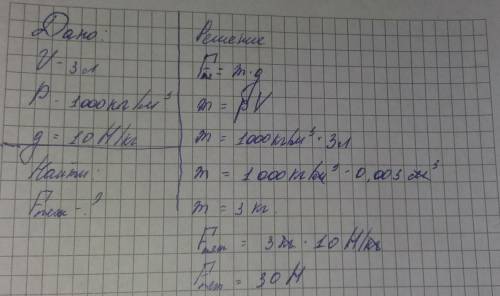 Дано:
V - 3 л
P - 1000 кг/м³
g = 10 Н/кг
Найти:
Fтяж - ?
Решение
Fтяж = m·g
m = ρV
m = 1000 кг/м³ · 3 л
m = 1000 кг/м³ · 0,003 м³
m = 3 кг.
Fтяж = 3 кг · 10 Н/кг
Fтяж = 30 Н